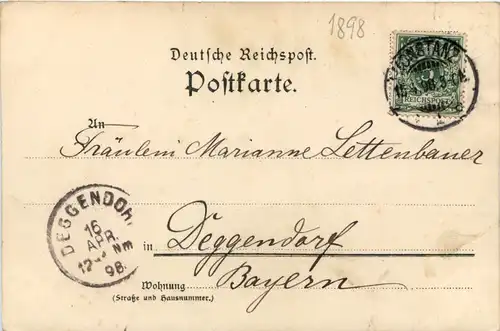 1898
Deutsche Reichspost.
Postkarte.
KONSTANZ
REICHSPOST
An
Fräulein Marianne Lettenbauer
DEGGENDORF
16
APR.
98.
in Deggendorf
Bayern
Wohnung
(Straße und Hausnummer.)